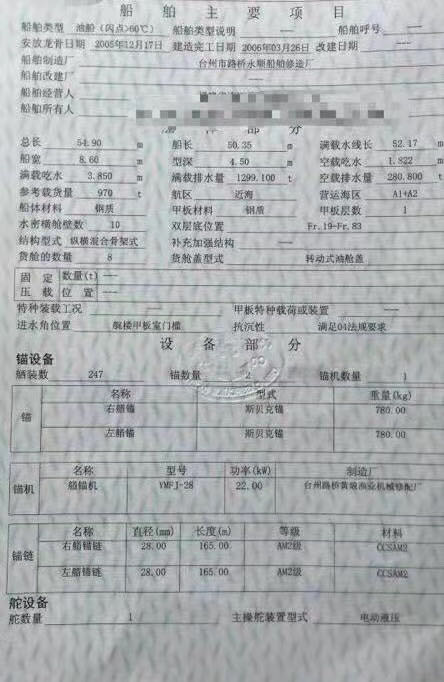 船 舶 主 要 项 目
船舶类型 油船（闪点>60℃） 船舶类型说明 —— 船舶呼号 ——
安放龙骨日期 2005年12月17日 建造完工日期 2006年03月26日 改建日期 ——
船舶制造厂 台州市路桥永顺船舶修造厂
船舶改建厂 ——
船舶经营人
船舶所有人
部 分
总长 54.90 m 船长 50.35 m 满载水线长 52.17 m
船宽 8.60 m 型深 4.50 m 空载吃水 1.822 m
满载吃水 3.850 m 满载排水量 1299.100 t 空载排水量 280.800 t
参考载货量 970 t 航区 近海 营运海区 A1+A2
船体材料 钢质 甲板材料 钢质 甲板层数 1
水密横舱壁数 10 双层底位置 Fr.19-Fr.83
结构型式 纵横混合骨架式 补充加强结构 ——
货舱的数量 8 货舱盖型式 转动式油舱盖
固 定 数量(t) ——
压 载 位 置 ——
特种装载工况 —— 甲板特种载荷或装置 ——
进水角位置 艉楼甲板室门槛 抗沉性 满足04法规要求
设 备 部 分
锚设备
舾装数 247 锚数量 2 锚机数量 1
锚 名称 型式 重量(kg)
右艏锚 斯贝克锚 780.00
左艏锚 斯贝克锚 780.00
锚机 名称 型号 功率(kW) 制造厂
艏锚机 YMFJ-28 22.00 台州路桥黄琅渔业机械修配厂
锚链 名称 直径(mm) 长度(m) 等级 材料
右艏锚链 28.00 165.00 AM2级 CCSAM2
左艏锚链 28.00 165.00 AM2级 CCSAM2
舵设备
舵数量 1 主操舵装置型式 电动液压